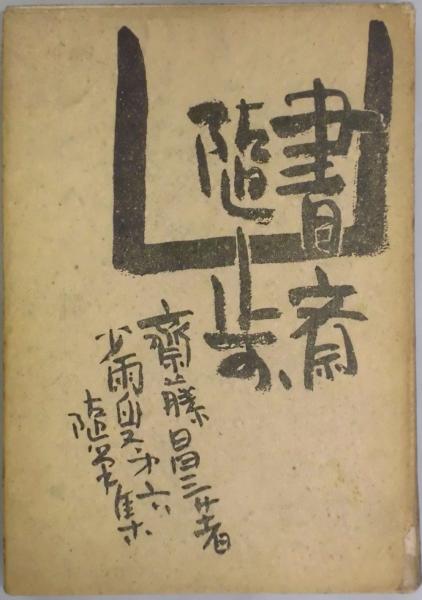 書斎
随歩
齋藤昌三著
少雨叟第六
随筆集